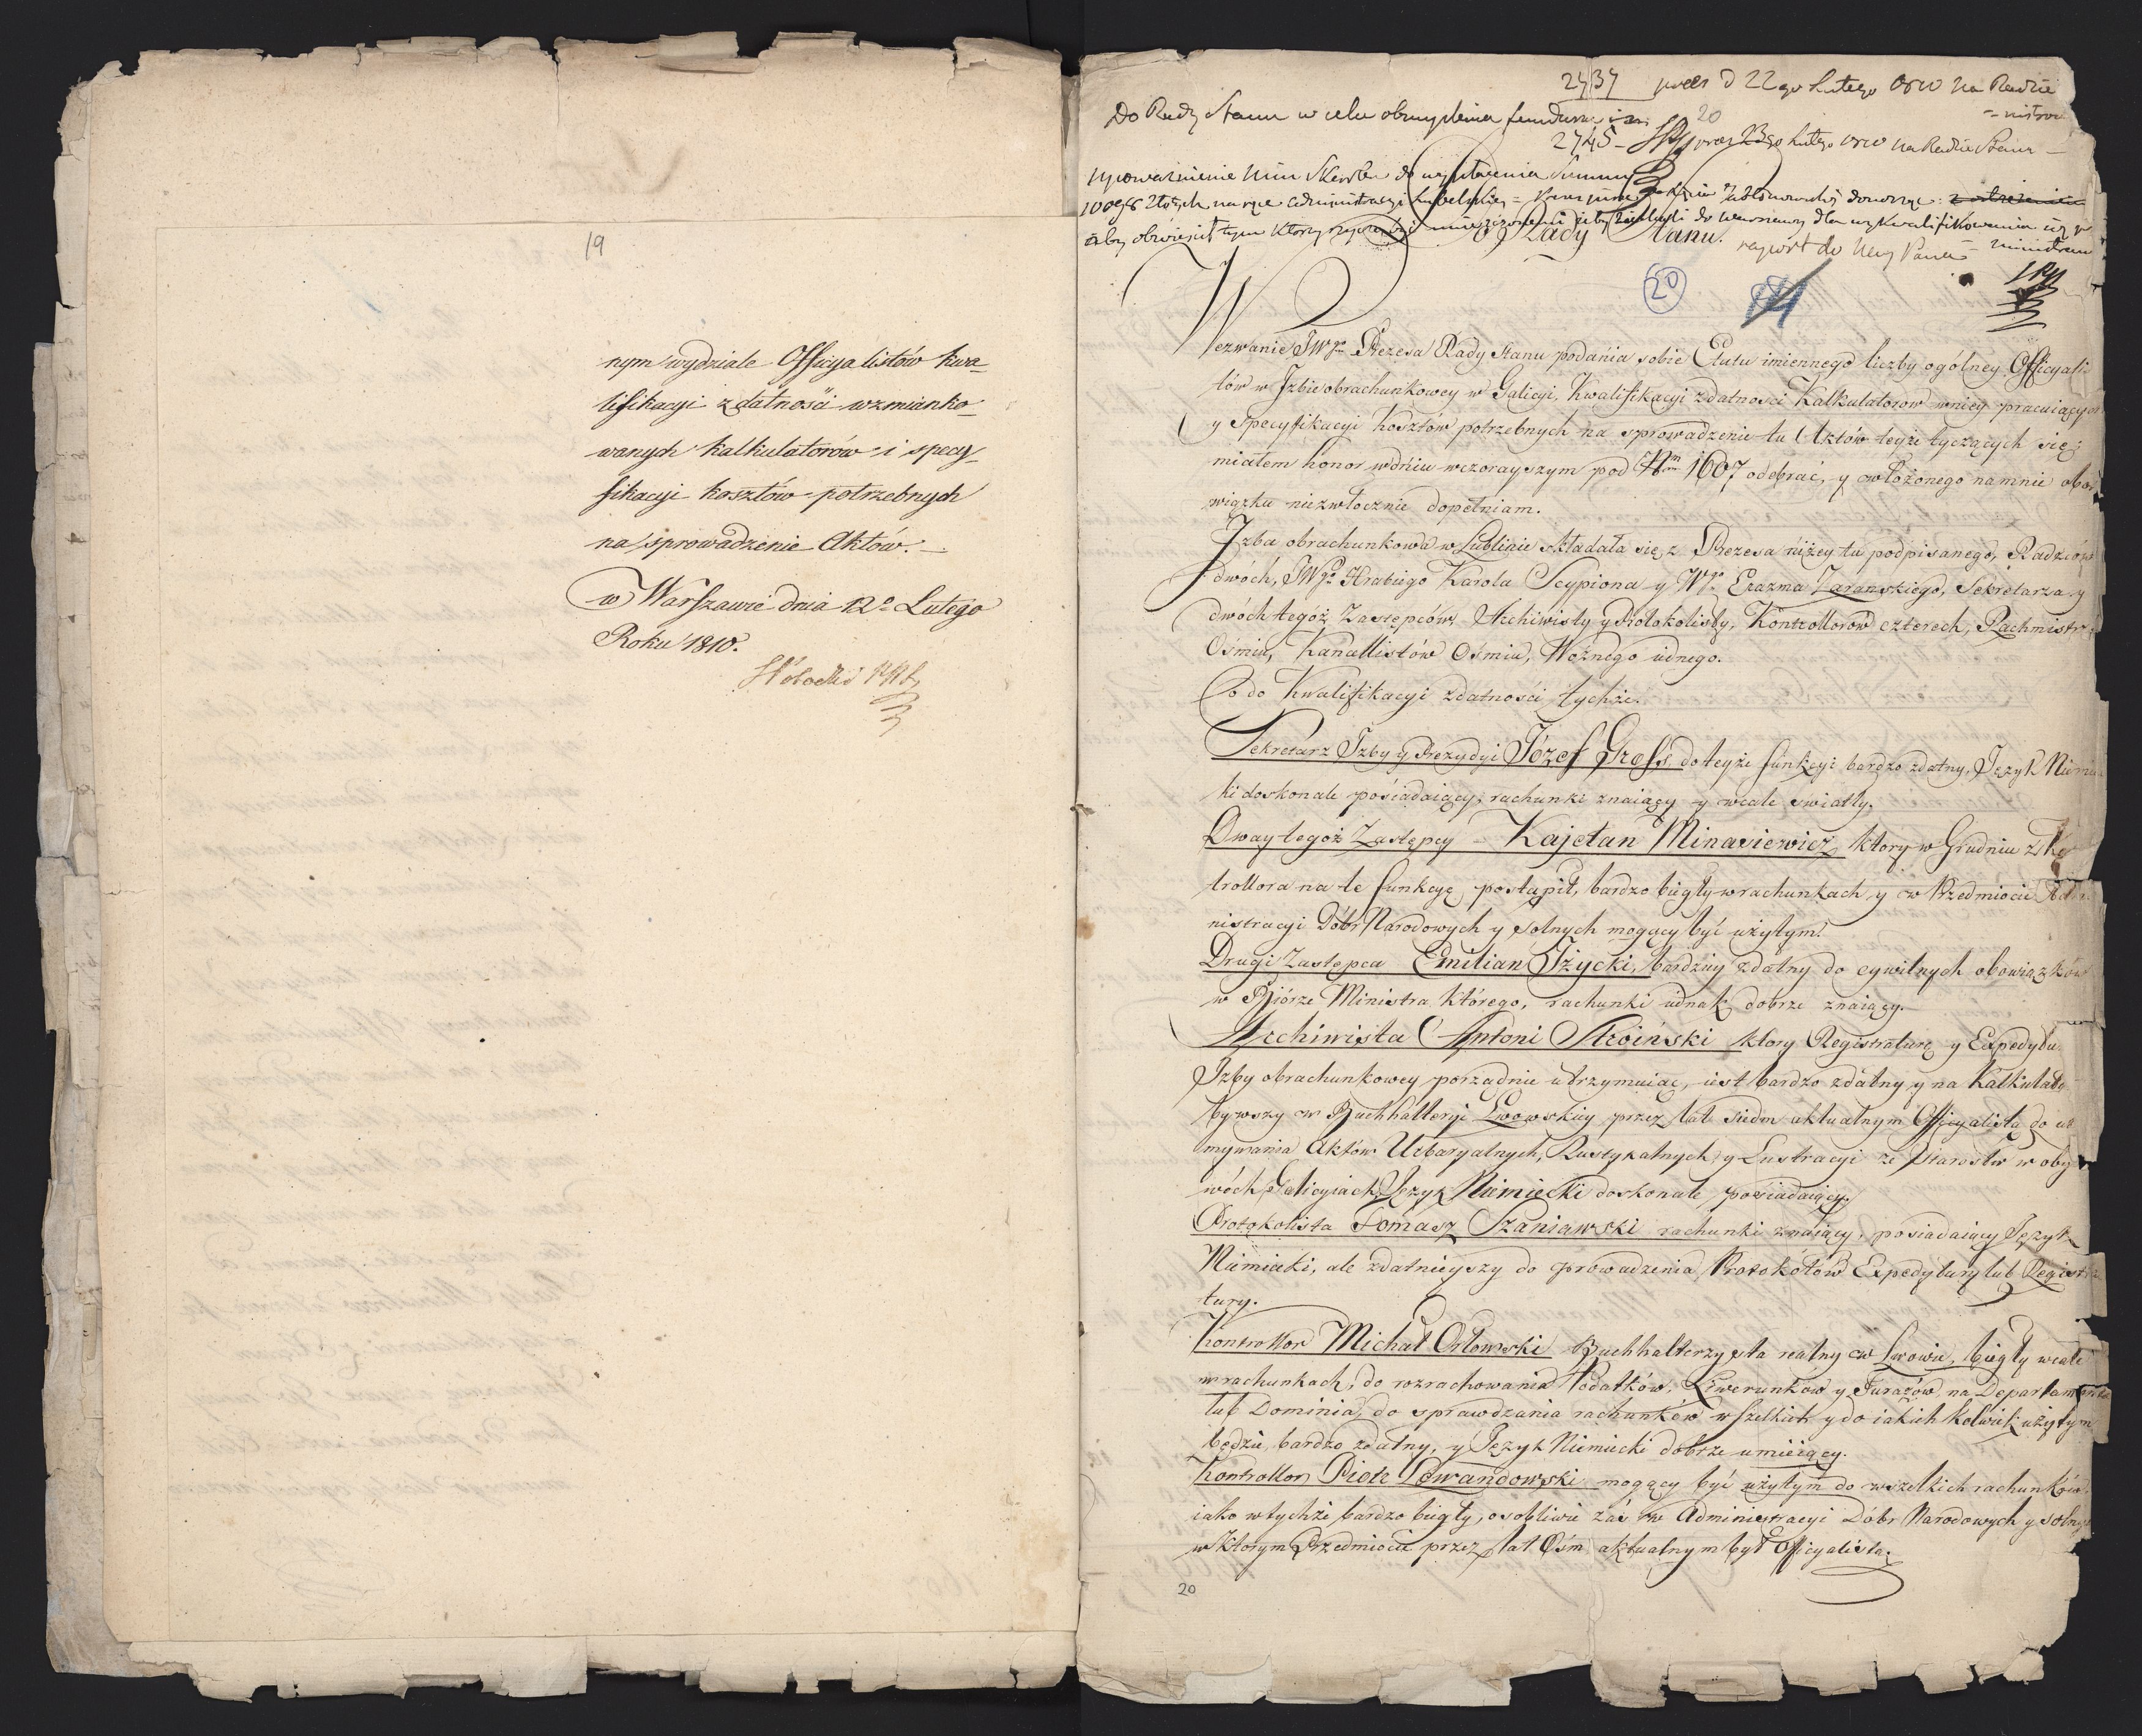 19
nym wydziale Officyalistów kwa-
lifikacyi zdatności wzmianko-
wanych kalkulatorów i specy-
fikacyi kosztów potrzebnych
na sprowadzenie Aktów. —
w Warszawie dnia 12o Lutego
Roku 1810.
2437 d 22go Lutego 1810 na Radzie
Do Rady Stanu w celu obmyslenia funduszu
20
2745 Lutego 1810 na Radzie Stanu —
upoważnienie Min Skarbu do wypłacenia Summy
złotych na ręce administracyi Lubelskiey =
aby obwieścił tym którzy do Warszawy dla wykwalifikowania się
Do Rady Stanu.
raport do Nay Pana =
20
Wezwanie JWgo Prezesa Rady Stanu podania sobie Etatu imiennego liczby ogólney Officyali
tów w Jzbie obrachunkowey w Galicyi, Kwalifikacyi zdatności Kalkulatorow w niey pracuiących
y Specyfikacyi Kosztów potrzebnych na sprowadzenie tu Aktów teyże tyczących się;
miałem honor w dniu wczorayszym pod Nrm 1607 odebrać, y włożonego na mnie obo
wiązku niezwłocznie dopełniam.
Jzba obrachunkowa w Lublinie składała się z Prezesa niżey tu podpisanego, Radzców
dwóch, JWgo Hrabiego Karola Scypiona y Wgo Erazma Zaranskiego, Sekretarza y
dwóch tegoż Zastępców, Archiwisty y Protokolisty, Kontrollorów czterech, Rachmistrz
Ośmiu, Kancellistów Ośmiu, Woźnego iednego.
Co do Kwalifikacyi zdatności tychże.
Sekretarz Jzby y Prezydyi Józef Gross do teyże funkcyi bardzo zdatny, Język Niemie
ki doskonale posiadaiący, rachunki znaiący y wcale swiatły.
Dway tegoż Zastępcy – Kajetan Minasiewicz, ktory w Grudniu z Ko
trollora na te funkcyę postąpił, bardzo biegły w rachunkach y w Przedmiocie Admi
nistracyi Dóbr Narodowych y solnych mogący być użytym.
Drugi Zastępca Emilian Iżycki, bardziey zdatny do cywilnych obowiązków
w Biórze Ministra którego, rachunki iednak dobrze znaiący.
Archiwista Antoni Stroiński ktory Registraturę y Expedytu
Jzby obrachunkowey porządnie utrzymuiąc, iest bardzo zdatny y na Kalkulato
bywszy w Buchhalteryi Lwowskiey przez lat siedm aktualnym Officyalistą do
mywania Aktów Urbaryalnych, Rustykalnych y Lustracyi ze Starostw w oby
wóch Galicyiach, Język Niemiecki doskonale posiadaiący.
Protokolista Tomasz Szaniawski rachunki znaiący, posiadaiący Język
Niemiecki, ale zdatnieyszy do prowadzenia Protokółów Expedytury lub Registra
tury.
Kontrollor Michał Orłowski Buchhalterzysta realny w Lwowie, biegły wcale
w rachunkach, do rozrachowania Podatków, Liwerunków y Furażów na Departamenta
lub Dominia, do sprawdzania rachunków wszelkich y do iakich kolwiek użytym
będzie, bardzo zdatny, y Język Niemiecki dobrze umieiący.
Kontrollor Piotr Lewandowski mogący być użytym do wszelkich rachunków
iako w tychże bardzo biegły, osobliwie zaś w Administracyi Dóbr Narodowych y solny
w ktorym Przedmiocie przez lat Ośm aktualnym był Officyalistą.
20